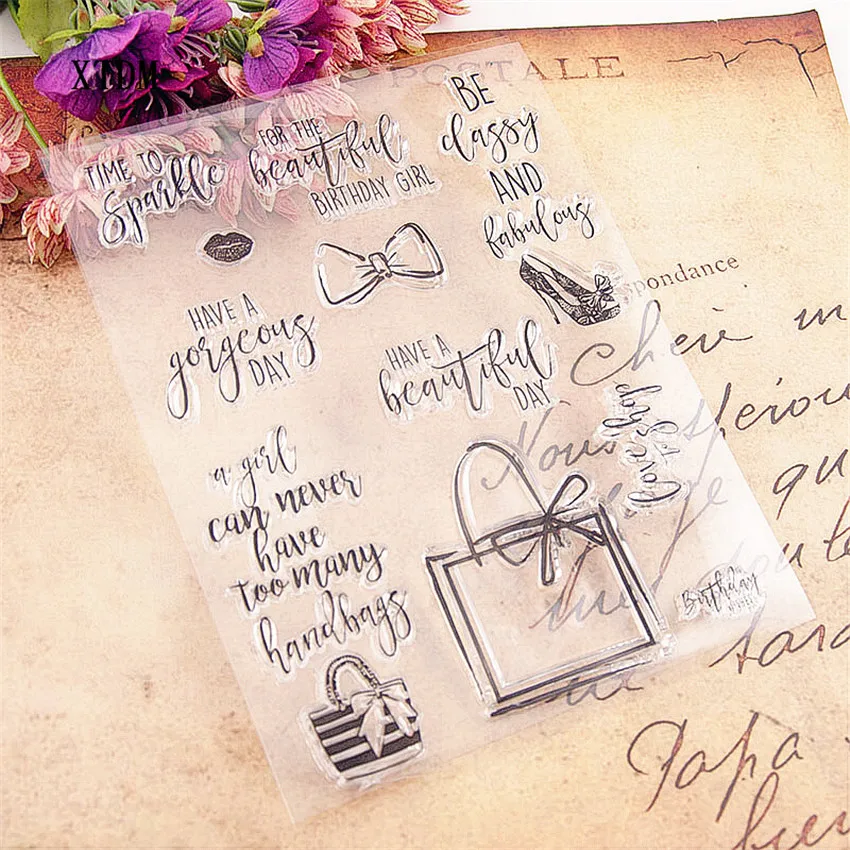 XTDM
POSTALE
TIME TO
Sparkle
FOR THE
beautiful
BIRTHDAY GIRL
BE
classy
AND
fabulous
pondance
HAVE A
gorgeous
DAY
HAVE A
beautiful
DAY
a girl
can never
have
too many
handbags
Birthday
Chère
Nous
que
Papa